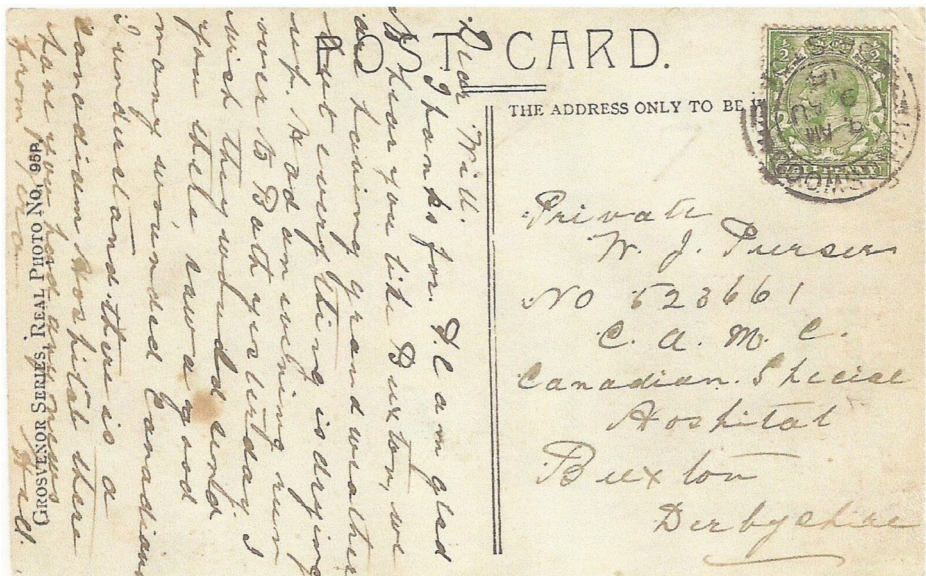 POST CARD.
THE ADDRESS ONLY TO BE
GROSVENOR SERIES, REAL PHOTO No. 95P
Dear Will.
Thanks for. P.C am glad
to hear you like Buxton, we
are having grand weather
but everything is drying
up. Had an evening run
over to Bath yesterday I
wish they would send
you there saw a good
many wounded Canadians
I understand there is a
Canadian Hospital there
have you had any news
from
Private
W. J. Purser
No 523661
C. A. M. C.
Canadian. Special
Hospital
Buxton
Derbyshire